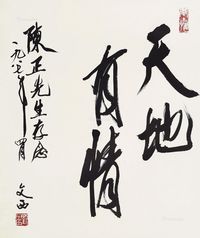 天地
有情
陳正先生存念
一九八七年四月
文西